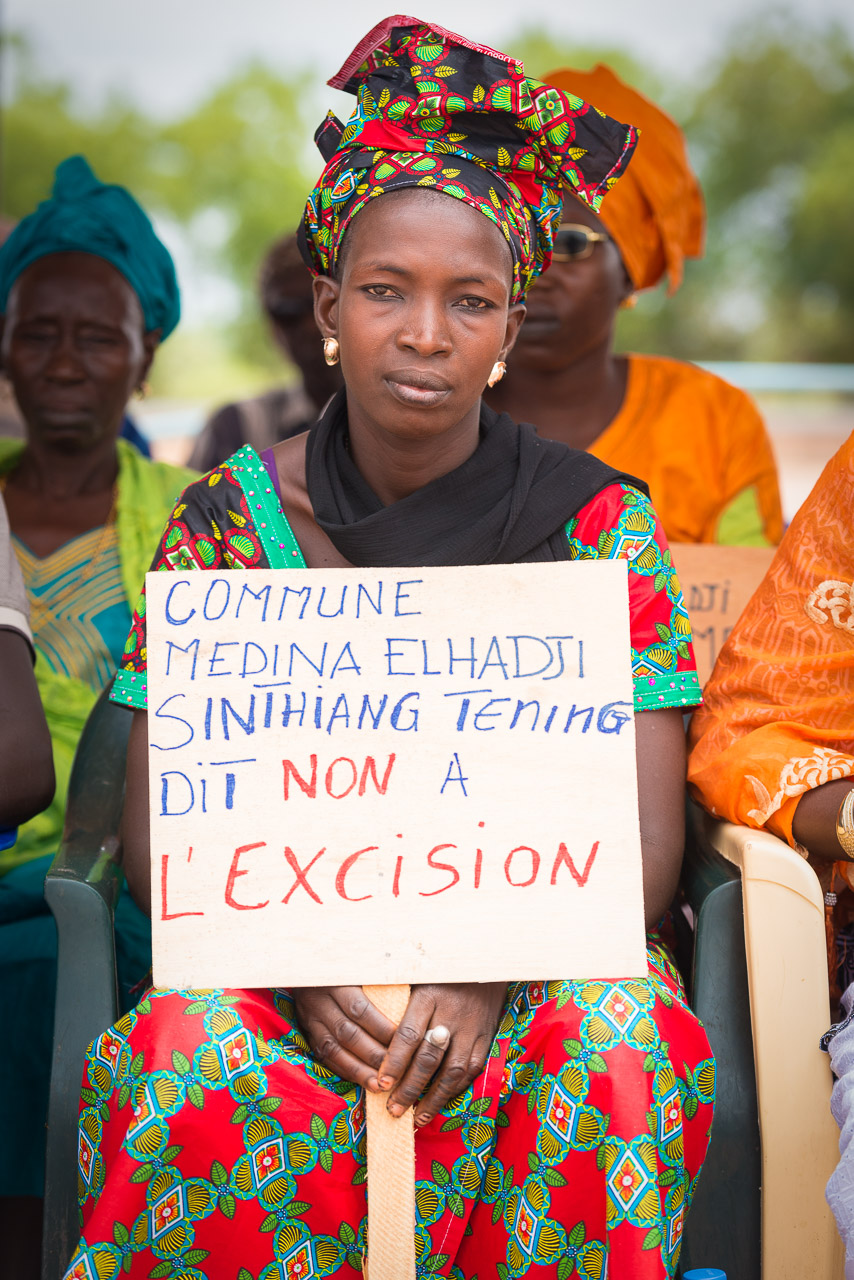 COMMUNE
MEDINA ELHADJI
SINTHIANG TENING
DIT NON A
L'EXCISION